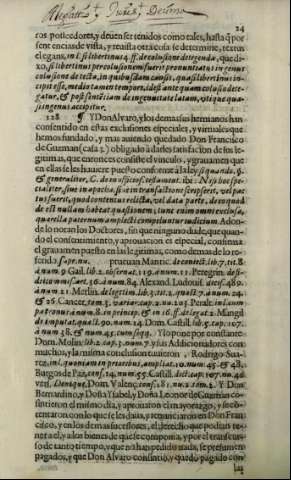 24
ros posseedores, y deuen ser tenidos como tales, hasta q̃ por
sentencias de vista, y reuista otra cosa se determine, textus
elegans, in l. si libertinus 4. ff. de collusione detegenda, que dizo,
si libertinus per collusionem fuerit pronuntiatus ingenuus
collusione detecta, in quibusdam causis, quasi libertinus incipit
esse, medio tamen tempore, idest ante quam collusio detegatur,
& post sententiam de ingenuitate latam, vtique quasi
ingenuus accipitur.
128 ¶ Y Don Aluaro, y los demas sus hermanos han
consentido en estas exclusiones especiales, y virtuales que
hemos fundado, y mas auiendo quedado Don Francisco
de Guzman (casa 2.) obligado à darles satisfacion de sus legitimas,
que entonces consiste el vinculo, y grauamen que
en ellas se les hauere puesto conforme à la ley si quando, 36.
& generaliter, C. de inoficios. testament. ibi: Nisi hoc specialiter,
siue in apocha, siue in transactione scripserit, vel pactus
fuerit, quod contentus relicta, vel data parte, de eo quod
deest nullam habeat quæstionem, tunc enim omni exclusa,
querella paternum amplecti compellitur iudicium. Adonde
lo notan los Doctores, sin que ninguno dude, que quando
el consentimiento, y aprouacion es especial, confirma
el grauamen puesto en las legitimas, como demas de lo referido
supr. nu. prueuan Mantic. de coniect. lib. 7. tit. 8.
num. 9. Gail. lib. 2. obseruat. 119. num. 11. Peregrin. de fideicommiss.
art. 36. num. 84. Alexand. Ludouis. decis. 489.
num. 21. Merlin. de legitim. lib. 3. tit. 2. quæst. 7. num. 24.
& 26. Cancer. tom. 3. variar. cap. 2. nu. 203.
patronus num. 8. in princip. & in 16. ff. de legat. 2. Mangil.
de imputat. quæst. 90. num. 24. Dom. Castill. lib. 5. cap. 107.
num. 38. & num. 41. cum seqq. Y lo pone por constante
Dom. Molin. lib. 2. cap. 3. num. 7. y sus Addicionadores con
muchos, y la misma conclusion tuuieron, Rodrigo Suarez,
in l. quoniam in prioribus, ampliat. 10. num. 45. & 48.
Burgos de Paz, cons. 14. num. 55. Castill. dict. cap. 107. nu. 40.
versi. Denique, Dom. Valenç. cons. 181. nu. 2. tom. 2. Y Don
Bernardino, y Doña Ysabel, y Doña Leonor de Guzman consintieron
el mismo dia, y aprouaron el mayorazgo, y se contentaron
con lo que se les daua, y renunciaron en Don Francisco,
y en los demas successores, el derecho que podian tener
a el, y a los bienes de que se componia, y por el transcurso
de tanto tiempo, y que no han pedido nada, se presumen
pagados, y que Don Aluaro consintiò, y quedo pagado con